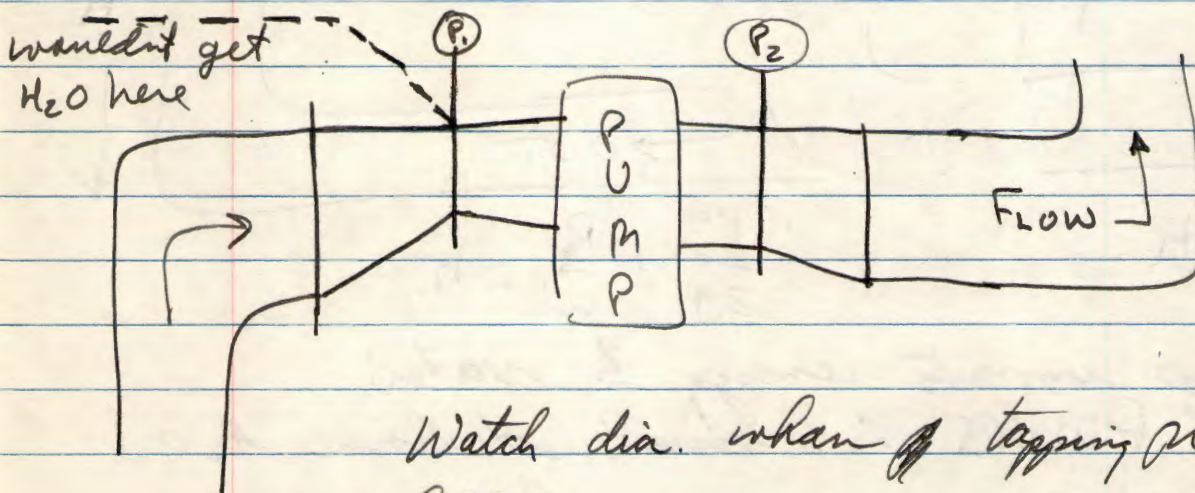 wouldnt get
H₂O here
P₁
P₂
PUMP
FLOW
Watch dia. when tapping